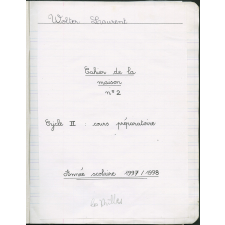 Walter Laurent
Cahier de la
maison
n°2
Cycle II : cours préparatoire
Année scolaire 1997/1998